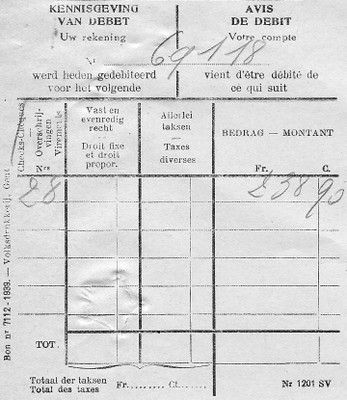 KENNISGEVING VAN DEBET
AVIS DE DEBIT
Uw rekening
Votre compte
Nr 69118
werd heden gedebiteerd voor het volgende
vient d'être débité de ce qui suit
Checks-Chèques
Overschrijvingen
Virements
Nrs
Vast en evenredig recht
Droit fixe et droit propor.
Allerlei taksen
Taxes diverses
BEDRAG — MONTANT
Fr. C.
28 238 90
TOT.
Totaal der taksen
Total des taxes
Fr......... Ct.......
Nr 1201 SV
Bon nr 7112-1939. — Volksdrukkerij, Gent